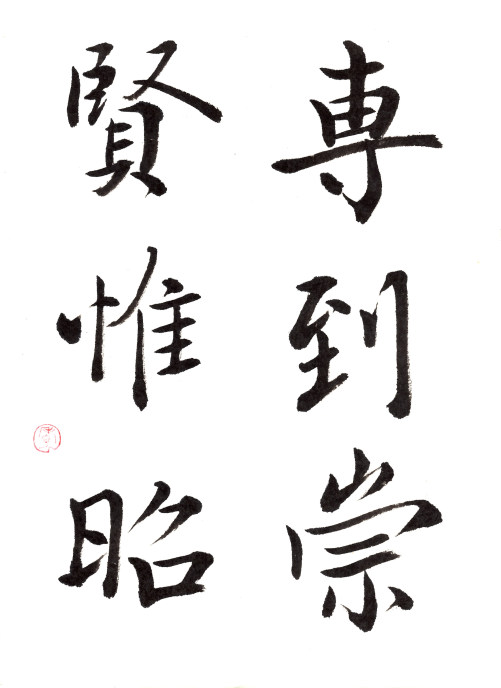 専到崇
賢惟昭